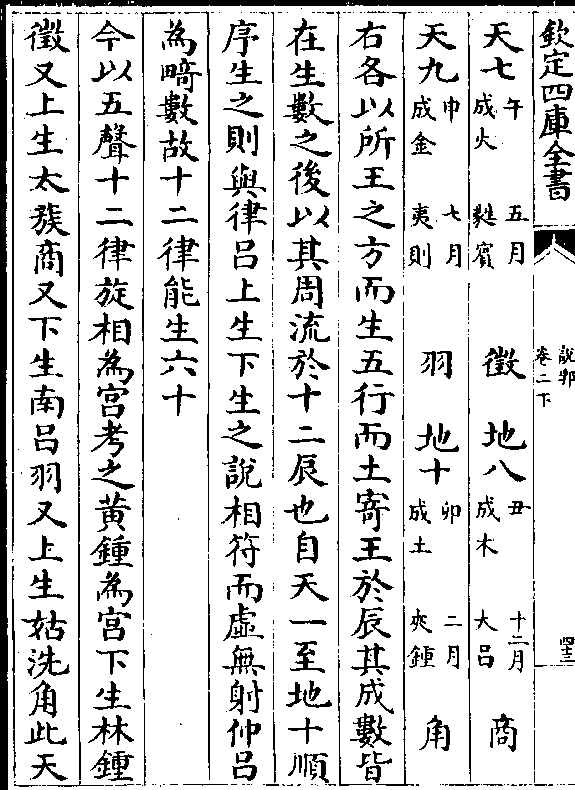 欽定四庫全書
說郛
卷二下
四十三
天七 午成火 五月蕤賓 徵 地八 丑成木 十二月大呂 商
天九 申成金 七月夷則 羽 地十 卯成土 二月夾鍾 角
右各以所王之方而生五行而土寄王於辰其成數皆
在生數之後以其周流於十二辰也自天一至地十順
序生之則與律呂上生下生之說相符而虛無射仲呂
為畸數故十二律能生六十
今以五聲十二律旋相為宮考之黄鍾為宮下生林鍾
徵又上生太蔟商又下生南呂羽又上生姑洗角此天